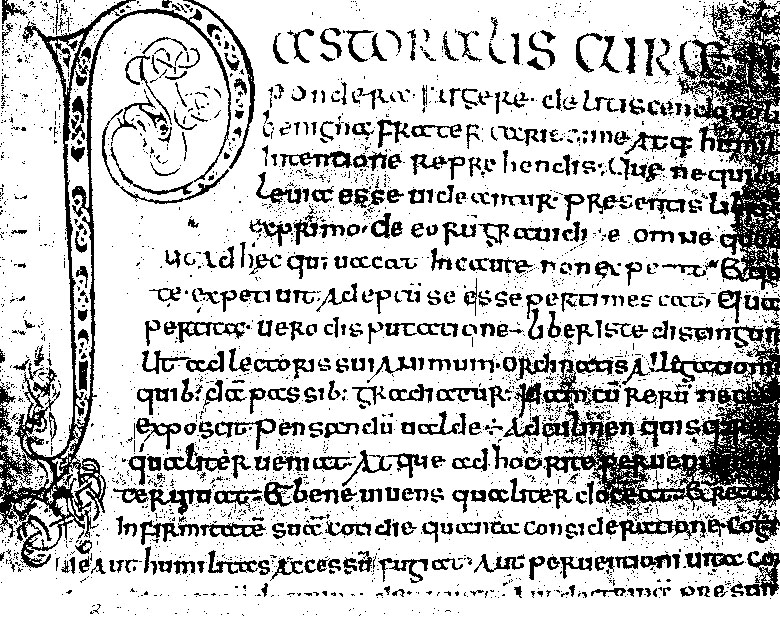 PASTORALIS CURAE
pondera fugere delitiscendo
benigna frater carissime atq: humil
intentione reprehendis. Que ne qui
levia esse videantur. presentis libri
exprimo. de eorū gravidi e omne quo
ut ad hec qui vacat. Incaute non expe t. & qu
te expetiuit. Adeptū se esse pertimescat. Qua
pertita. vero disputatione. liber iste distingui
Ut ad lectoris sui Animum. Ordinatis Allegation
quib: dā passib: gradiatur. Nam cū rerū nece
exposcit pensandū valde ÷ Ad culmen quisq
qualiter veniat. Atque ad hoc rite perveni
ter vivat. & bene vivens qualiter doceat. & recte
Infirmitatē suā cotidie quanta consideratione. Cog
ne Aut humilitas Accessū fugiat. Aut perventioni vita co